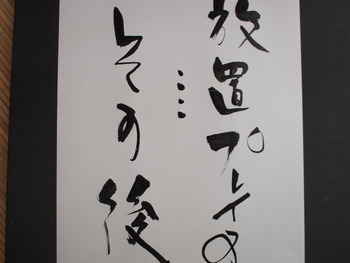 放置プレイの
…
その後